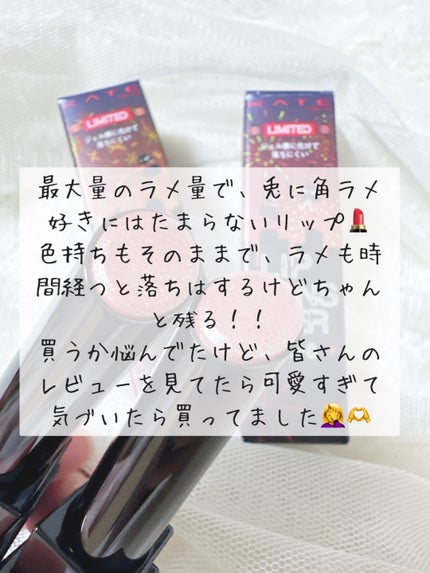 KATE
LIMITED
ジェル膜に化けて
落ちにくい
KATE
LIMITED
ジェル膜に化けて
落ちにくい
最大量のラメ量で、兎に角ラメ
好きにはたまらないリップ💄
色持ちもそのままで、ラメも時
間経つと落ちはするけどちゃん
と残る！！
買うか悩んでたけど、皆さんの
レビューを見てたら可愛すぎて
気づいたら買ってました🤦‍♀️🫶